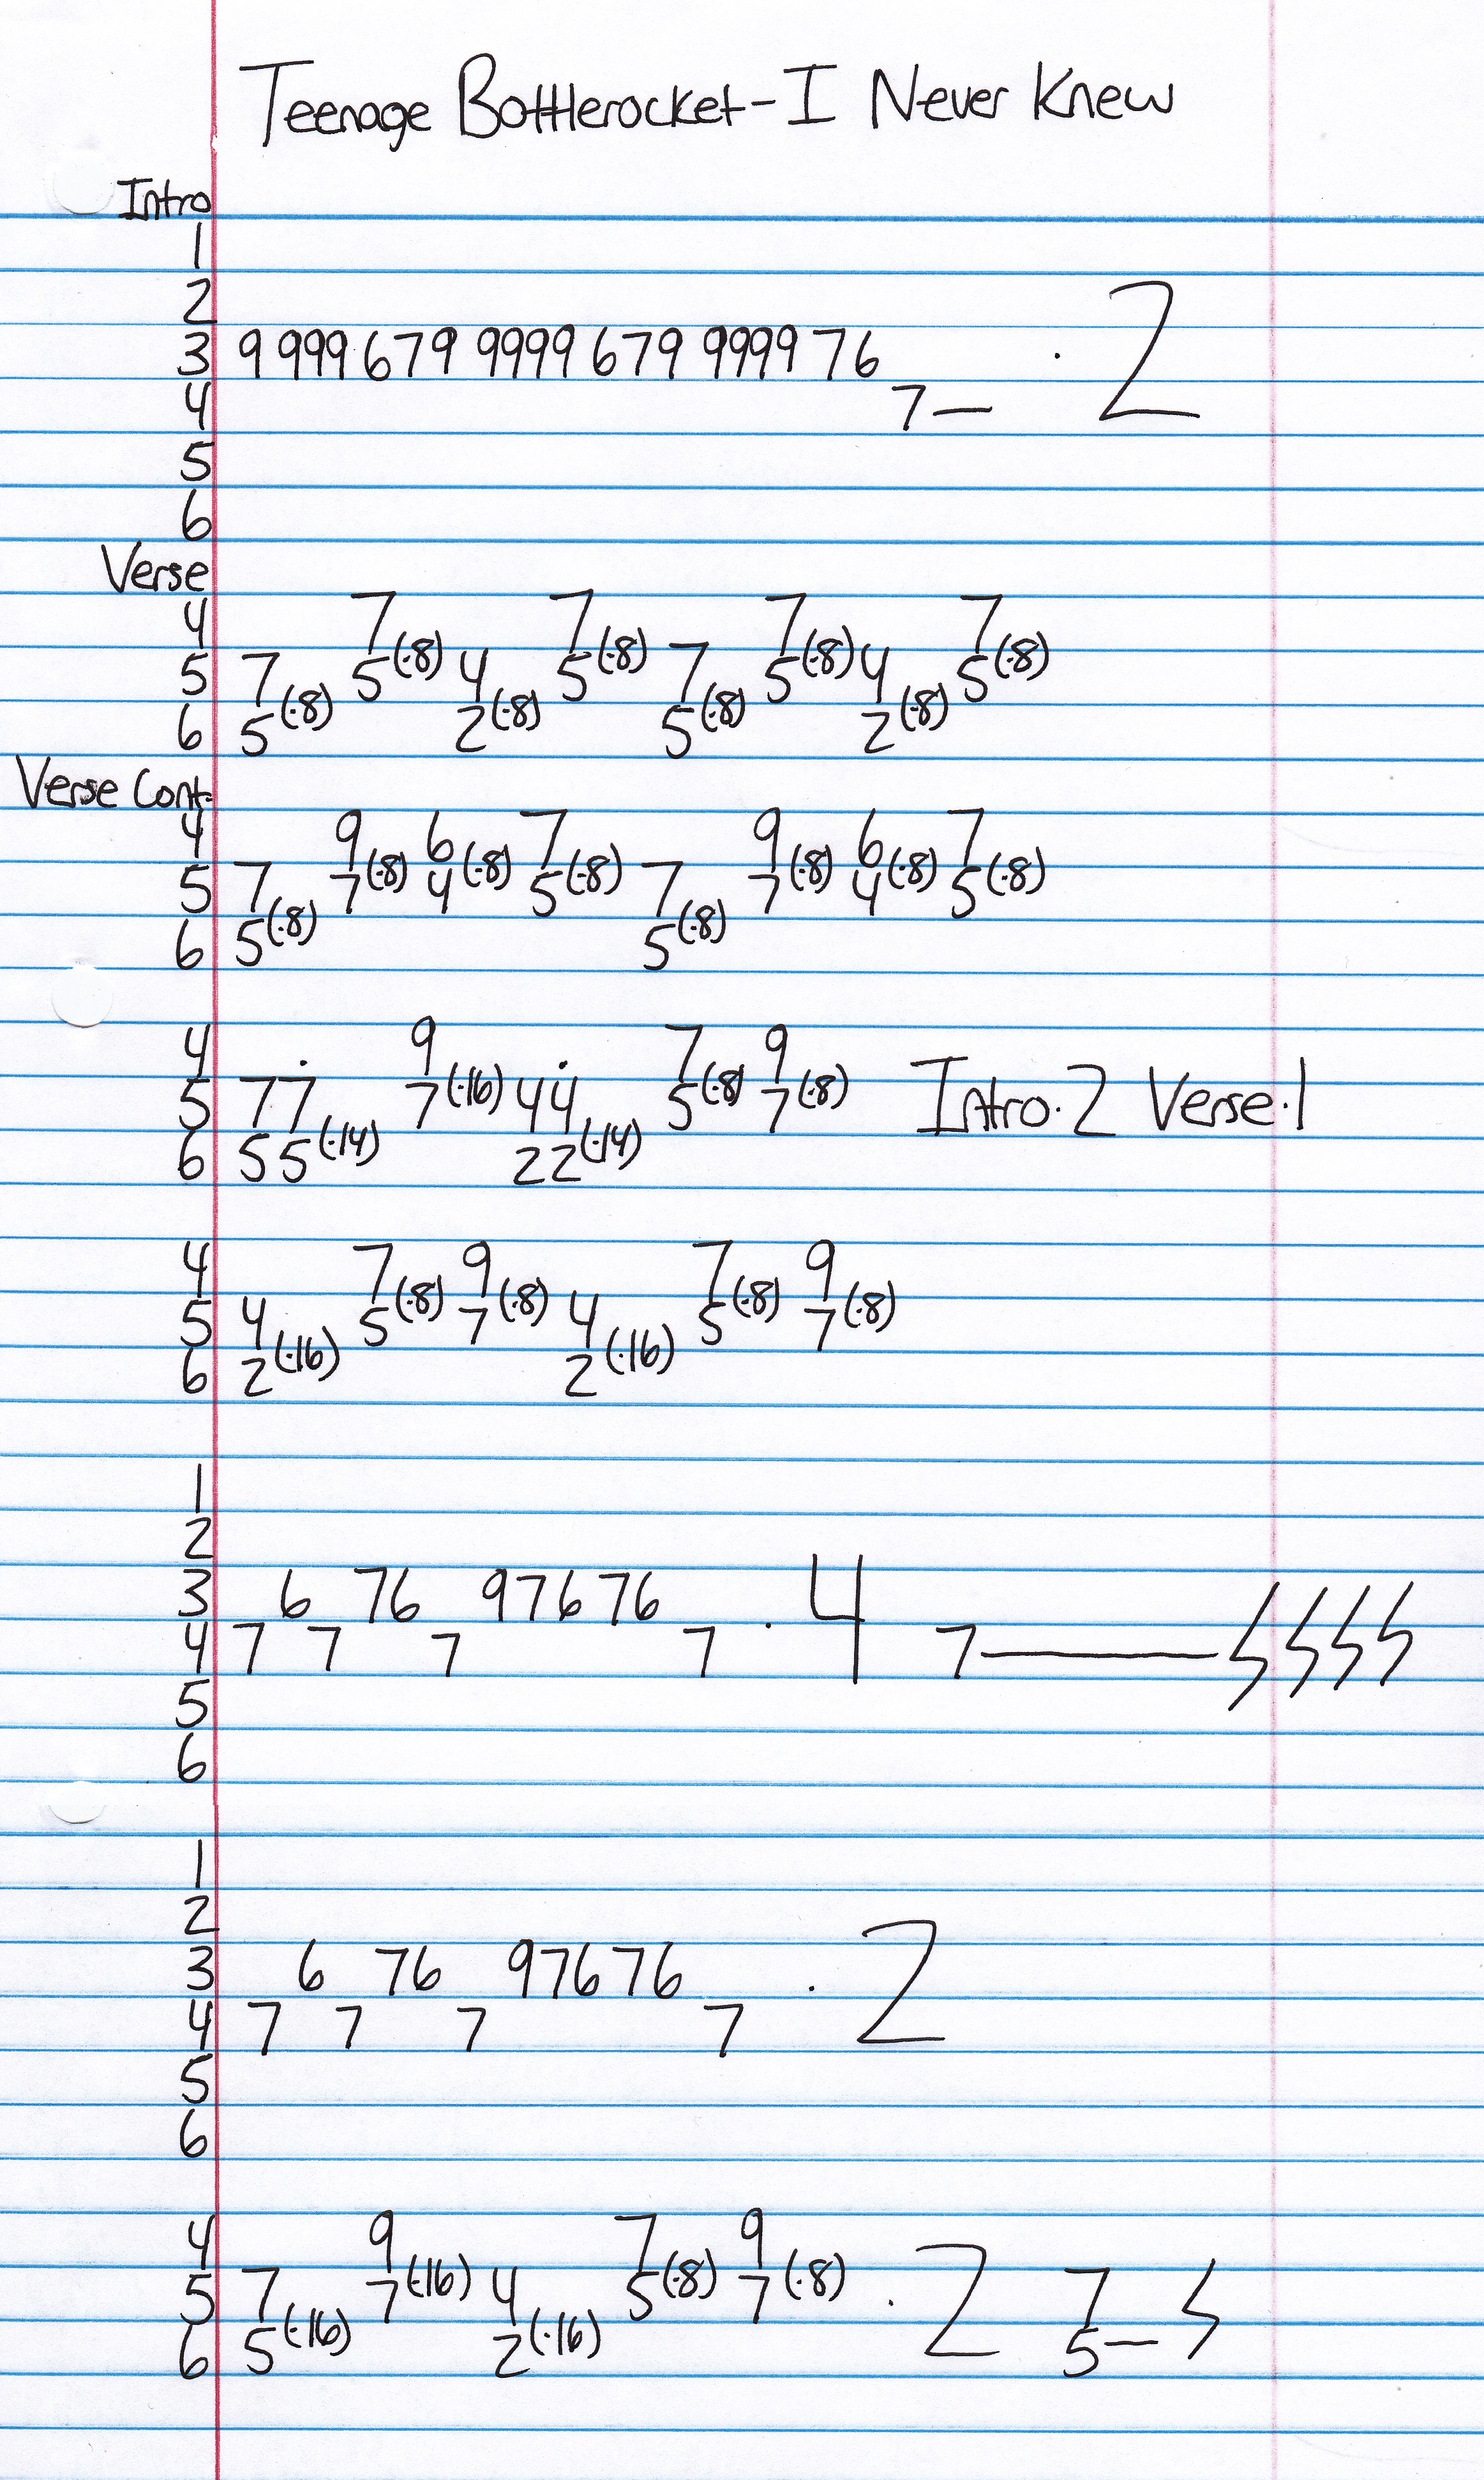 Teenage Bottlerocket-I Never Knew
Intro
1
2
3 9 999 679 9999 679 9999 76 · 2
4 7—
5
6
Verse
4 7 7 7 7
5 7 5(·8) 4 5(·8) 7 5(·8) 4 5(·8)
6 5(·8) 2(·8) 5(·8) 2(·8)
Verse Cont.
4 9 6 7 9 6 7
5 7 7(·8) 4(·8) 5(·8) 7 7(·8) 4(·8) 5(·8)
6 5(·8) 5(·8)
4 9 7 9
5 77 7(·16) 44 5(·8) 7(·8) Intro·2 Verse·1
6 55(·14) 22(·14)
4 7 9 7 9
5 4 5(·8) 7(·8) 4 5(·8) 7(·8)
6 2(·16) 2(·16)
1
2
3 6 76 97676 · 4
4 7 7 7 7 7—
5
6
1
2
3 6 76 97676 · 2
4 7 7 7 7
5
6
4 9 7 9
5 7 7(·16) 4 5(·8) 7(·8) · 2 7
6 5(·16) 2(·16) 5—